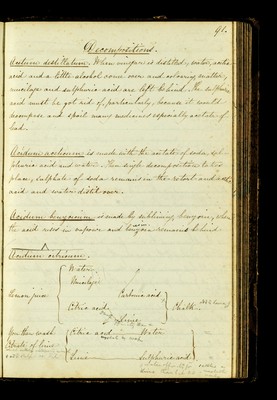 91.
Decompositions.
Acetum destillatum. When vinegar is distilled, water, acetic
acid and a little alcohol come over and coloring matter,
mucilage and sulphuric acid are left behind. The sulphuric
acid must be got rid of, particularly, because it would
decompose and spoil many medicines especially acetate of
lead.
Acidum aceticum is made with the acetate of soda, sul-
phuric acid and water. Then single decomposition takes
place, sulphate of soda remains in the retort and acetic
acid and water distil over.
Acidum benzoicum is made by subliming benzoin, when
the acid rises in vapour and remains behind.
Acidum citricum.
Lemon juice
Water
Mucilage
Citric acid
Carbonic acid
Lime
Chalk
You then wash
Citrate of lime
Citric acid
Water
Lime
Sulphuric acid